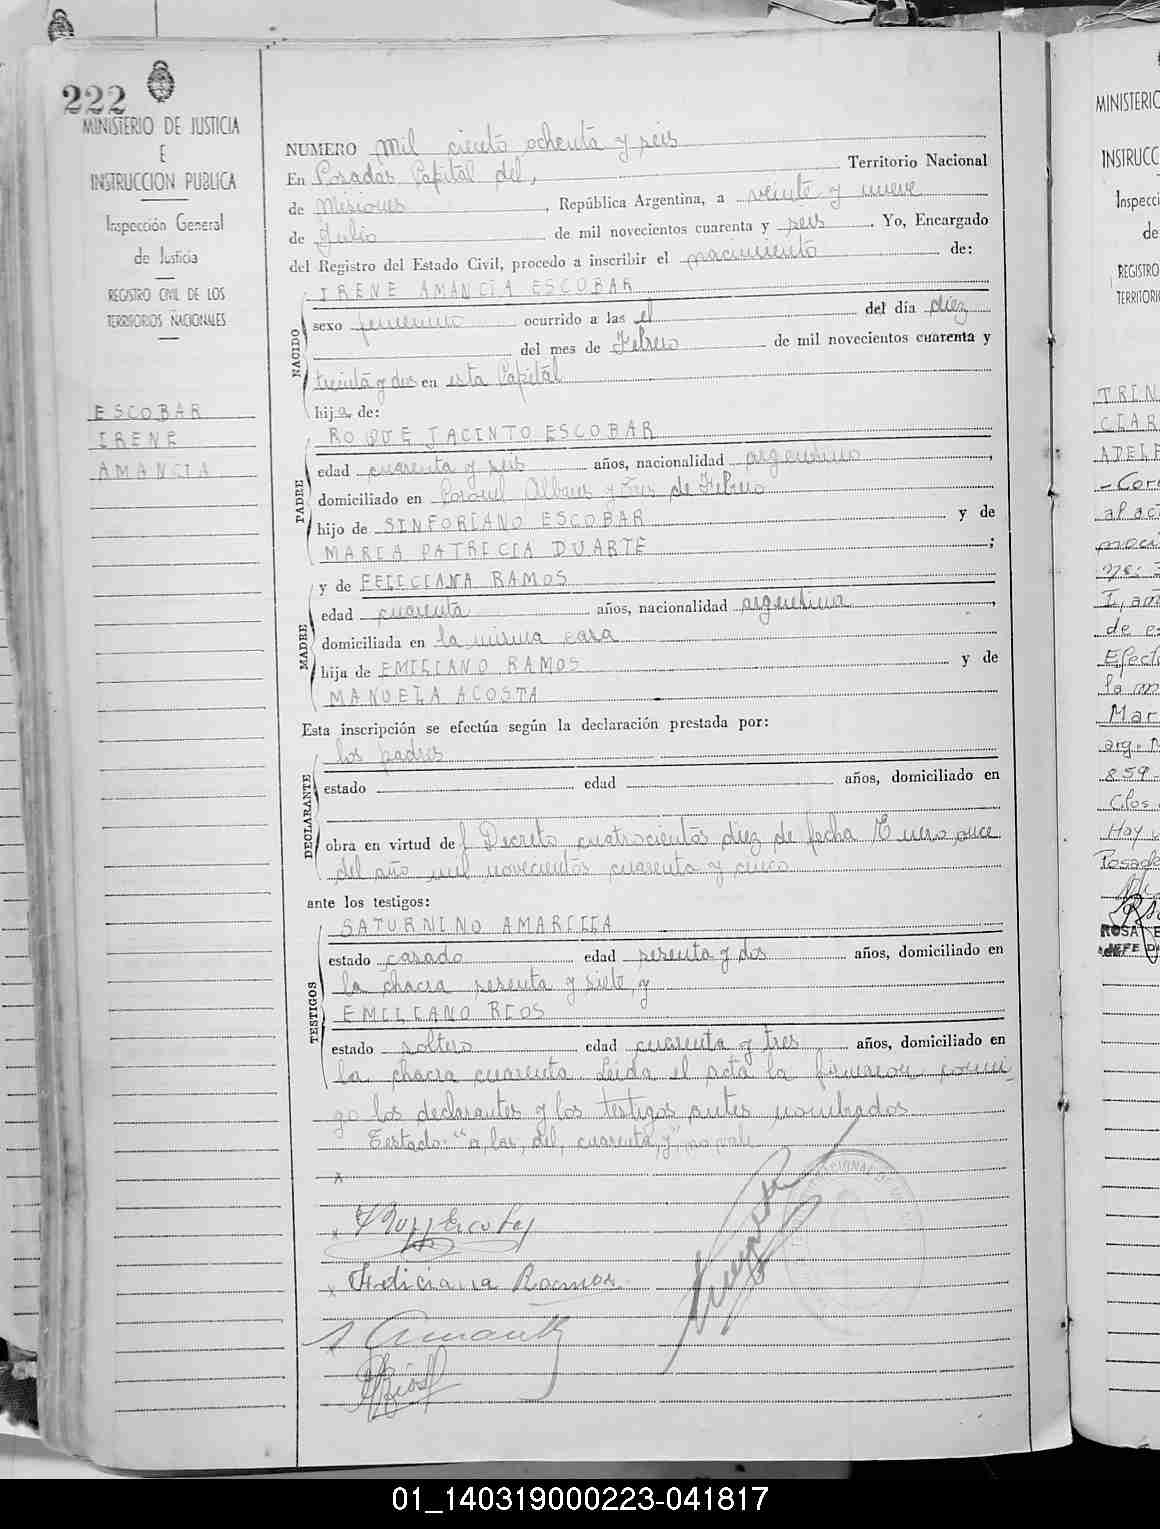 222
MINISTERIO DE JUSTICIA
E
INSTRUCCION PUBLICA
Inspección General
de Justicia
REGISTRO CIVIL DE LOS
TERRITORIOS NACIONALES
ESCOBAR
IRENE
AMANCIA
NUMERO mil ciento ochenta y seis
En Posadas Capital del, Territorio Nacional
de Misiones, República Argentina, a veinte y nueve
de Julio de mil novecientos cuarenta y seis. Yo, Encargado
del Registro del Estado Civil, procedo a inscribir el nacimiento de:
NACIDO
IRENE AMANCIA ESCOBAR
sexo femenino ocurrido a las el del día diez
del mes de Febrero de mil novecientos cuarenta y
treinta y dos en esta Capital
hija de:
PADRE
ROQUE JACINTO ESCOBAR
edad cuarenta y seis años, nacionalidad argentino,
domiciliado en Coronel y Tres de Febrero
hijo de SINFORIANO ESCOBAR y de
MARIA PATRICIA DUARTE;
y de FELICIANA RAMOS
MADRE
edad cuarenta años, nacionalidad argentina,
domiciliada en la misma casa
hija de EMILIANO RAMOS y de
MANUELA ACOSTA
Esta inscripción se efectúa según la declaración prestada por:
DECLARANTE
los padres
estado edad años, domiciliado en
obra en virtud del Decreto cuatrocientos diez de fecha Enero once
del año mil novecientos cuarenta y cinco
ante los testigos:
TESTIGOS
SATURNINO AMARILLA
estado casado edad sesenta y dos años, domiciliado en
la chacra sesenta y siete y
EMILIANO RIOS
estado soltero edad cuarenta y tres años, domiciliado en
la chacra cuarenta. Leida el acta la firmaron conmi-
go los declarantes y los testigos antes nombrados
Testado: "a, las, del, cuarenta, y", no vale
x
x Escobar
x Feliciana Ramos
Rios
MINISTERIO
INSTRUCC
Inspecci
de
REGISTRO
TERRITORI
ROSA E
JEFE D
859-
Mar
Hoy
Posada
01_140319000223-041817